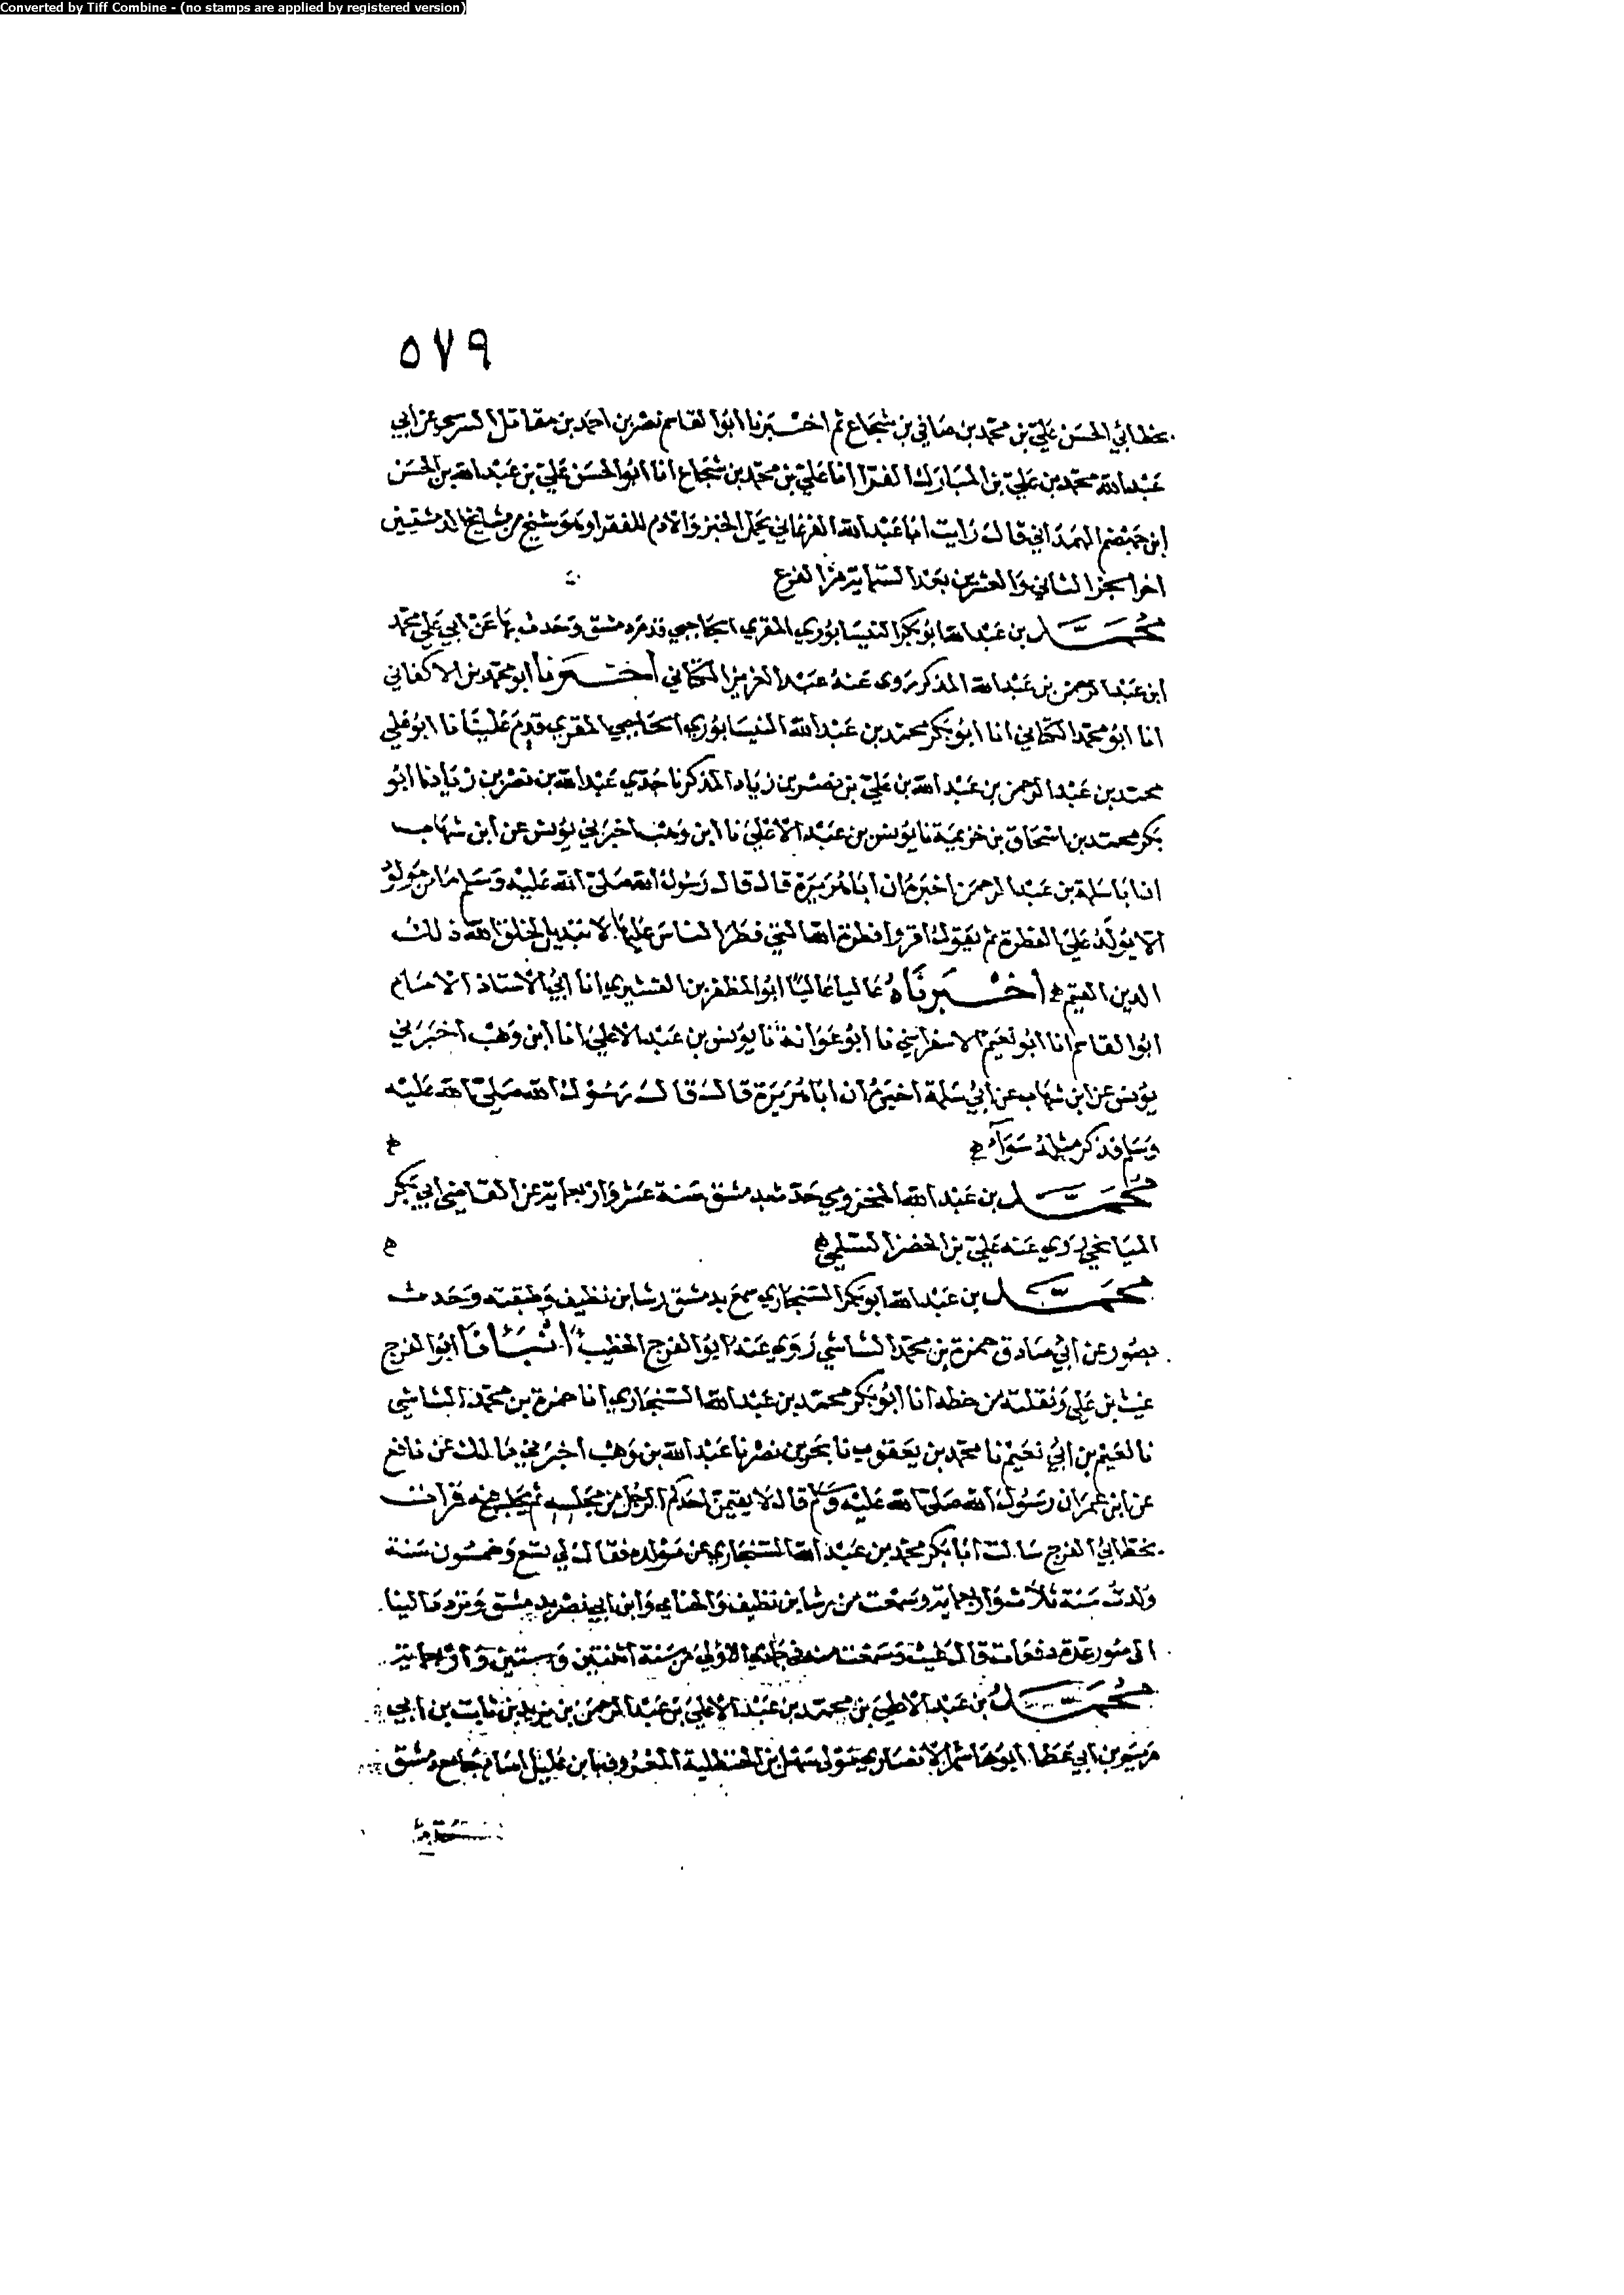 Converted by Tiff Combine - (no stamps are applied by registered version)
٥٧٩
بخط ابي الحسن علي بن محمد بن صافي بن شجاع ثم اخبرنا ابوا لقاسم نصر بن احمد بن مقاتل عن ابي
عبد الله محمد بن علي بن المبارك الفرا انا علي بن محمد بن شجاع انا ابو الحسن علي بن عبد الله بن الحسن
ابن جهضم الهمداني قال رايت ابا عبد الله يحمل الخبز والادم للفقرا وهو شيخ من مشايخ الدمشقيين
اخر الجزا الثاني والعشرين بعد الستماية من الفرع
محمد بن عبد الله ابو بكر النيسابوري المقري الحاجبي قدم دمشق وحدث بها عن ابي علي محمد
ابن عبد الرحمن بن عبد الله المذكر روى عنه عبد العزيز الكتاني اخبرنا ابو محمد بن الاكفاني
انا ابو محمد الكتاني انا ابو بكر محمد بن عبد الله النيسابوري الحاجبي المقري قدم علينا نا ابو علي
محمد بن عبد الرحمن بن عبد الله بن علي بن نصر بن زياد المذكر نا جدي عبد الله بن نصر بن زياد نا ابو
بكر محمد بن اسحاق بن خزيمة نا يونس بن عبد الاعلى نا ابن وهب اخبرني يونس عن ابن شهاب
ان ابا سلمة بن عبد الرحمن اخبره ان ابا هريرة قال قال رسول الله صلى الله عليه وسلم ما من مولود
الا يولد على الفطرة ثم يقول اقروا فطرة الله التي فطر الناس عليها لا تبديل لخلق الله ذلك
الدين القيم ه اخبرناه عاليا ابو المظفر بن القشيري انا ابي الاستاذ الامام
ابوا لقاسم انا ابو نعيم الاسفرايني نا ابو عوانة نا يونس بن عبد الاعلى انا ابن وهب اخبرني
يونس عن ابن شهاب عن ابي سلمة اخبره ان ابا هريرة قال قال رسول الله صلى الله عليه
وسلم فذكر مثله سوآء ه ه
محمد بن عبد الله المخزومي حدث بدمشق سنة عشر واربعماية عن القاضي ابي بكر
الميانجي روى عنه علي بن الخضر السلمي ه ه
محمد بن عبد الله ابو بكر السنجاري سمع بدمشق رشا بن نظيف وطبقته وحدث
بصور عن ابي صادق حمزة بن محمد الشاشي روى عنه ابو الفرج الخطيب انبانا ابو الفرج
غيث بن علي ونقلته من خطه انا ابو بكر محمد بن عبد الله السنجاري انا حمزة بن محمد الشاشي
نا نعيم بن ابي نعيم نا محمد بن يعقوب نا بحر بن نصر نا عبد الله بن وهب اخبرني مالك عن نافع
عن ابن عمر ان رسول الله صلى الله عليه وسلم قال لا يقيمن احدكم الرجل من مجلسه ثم يجلس فيه قرات
بخط ابي الفرج سالت ابا بكر محمد بن عبد الله السنجاري عن مولده فقال لي تسع وخمسون سنة
ولدت سنة ثلاث واربعماية وسمعت من رشا بن نظيف والحنائي وابن ابي نصر بدمشق وتردد الينا
الى صور عدة دفعات قال غيث وسمعت منه في جمادي الاولى من سنة اثنتين وستين واربعماية
محمد بن عبد الاعلى بن محمد بن عبد الاعلى بن عبد الرحمن بن يزيد بن ثابت بن ابي
مريم بن ابي عطا ابو هاشم الانصاري مولى سهل ابن الحنظلية المعروف بابن عليل امام جامع دمشق